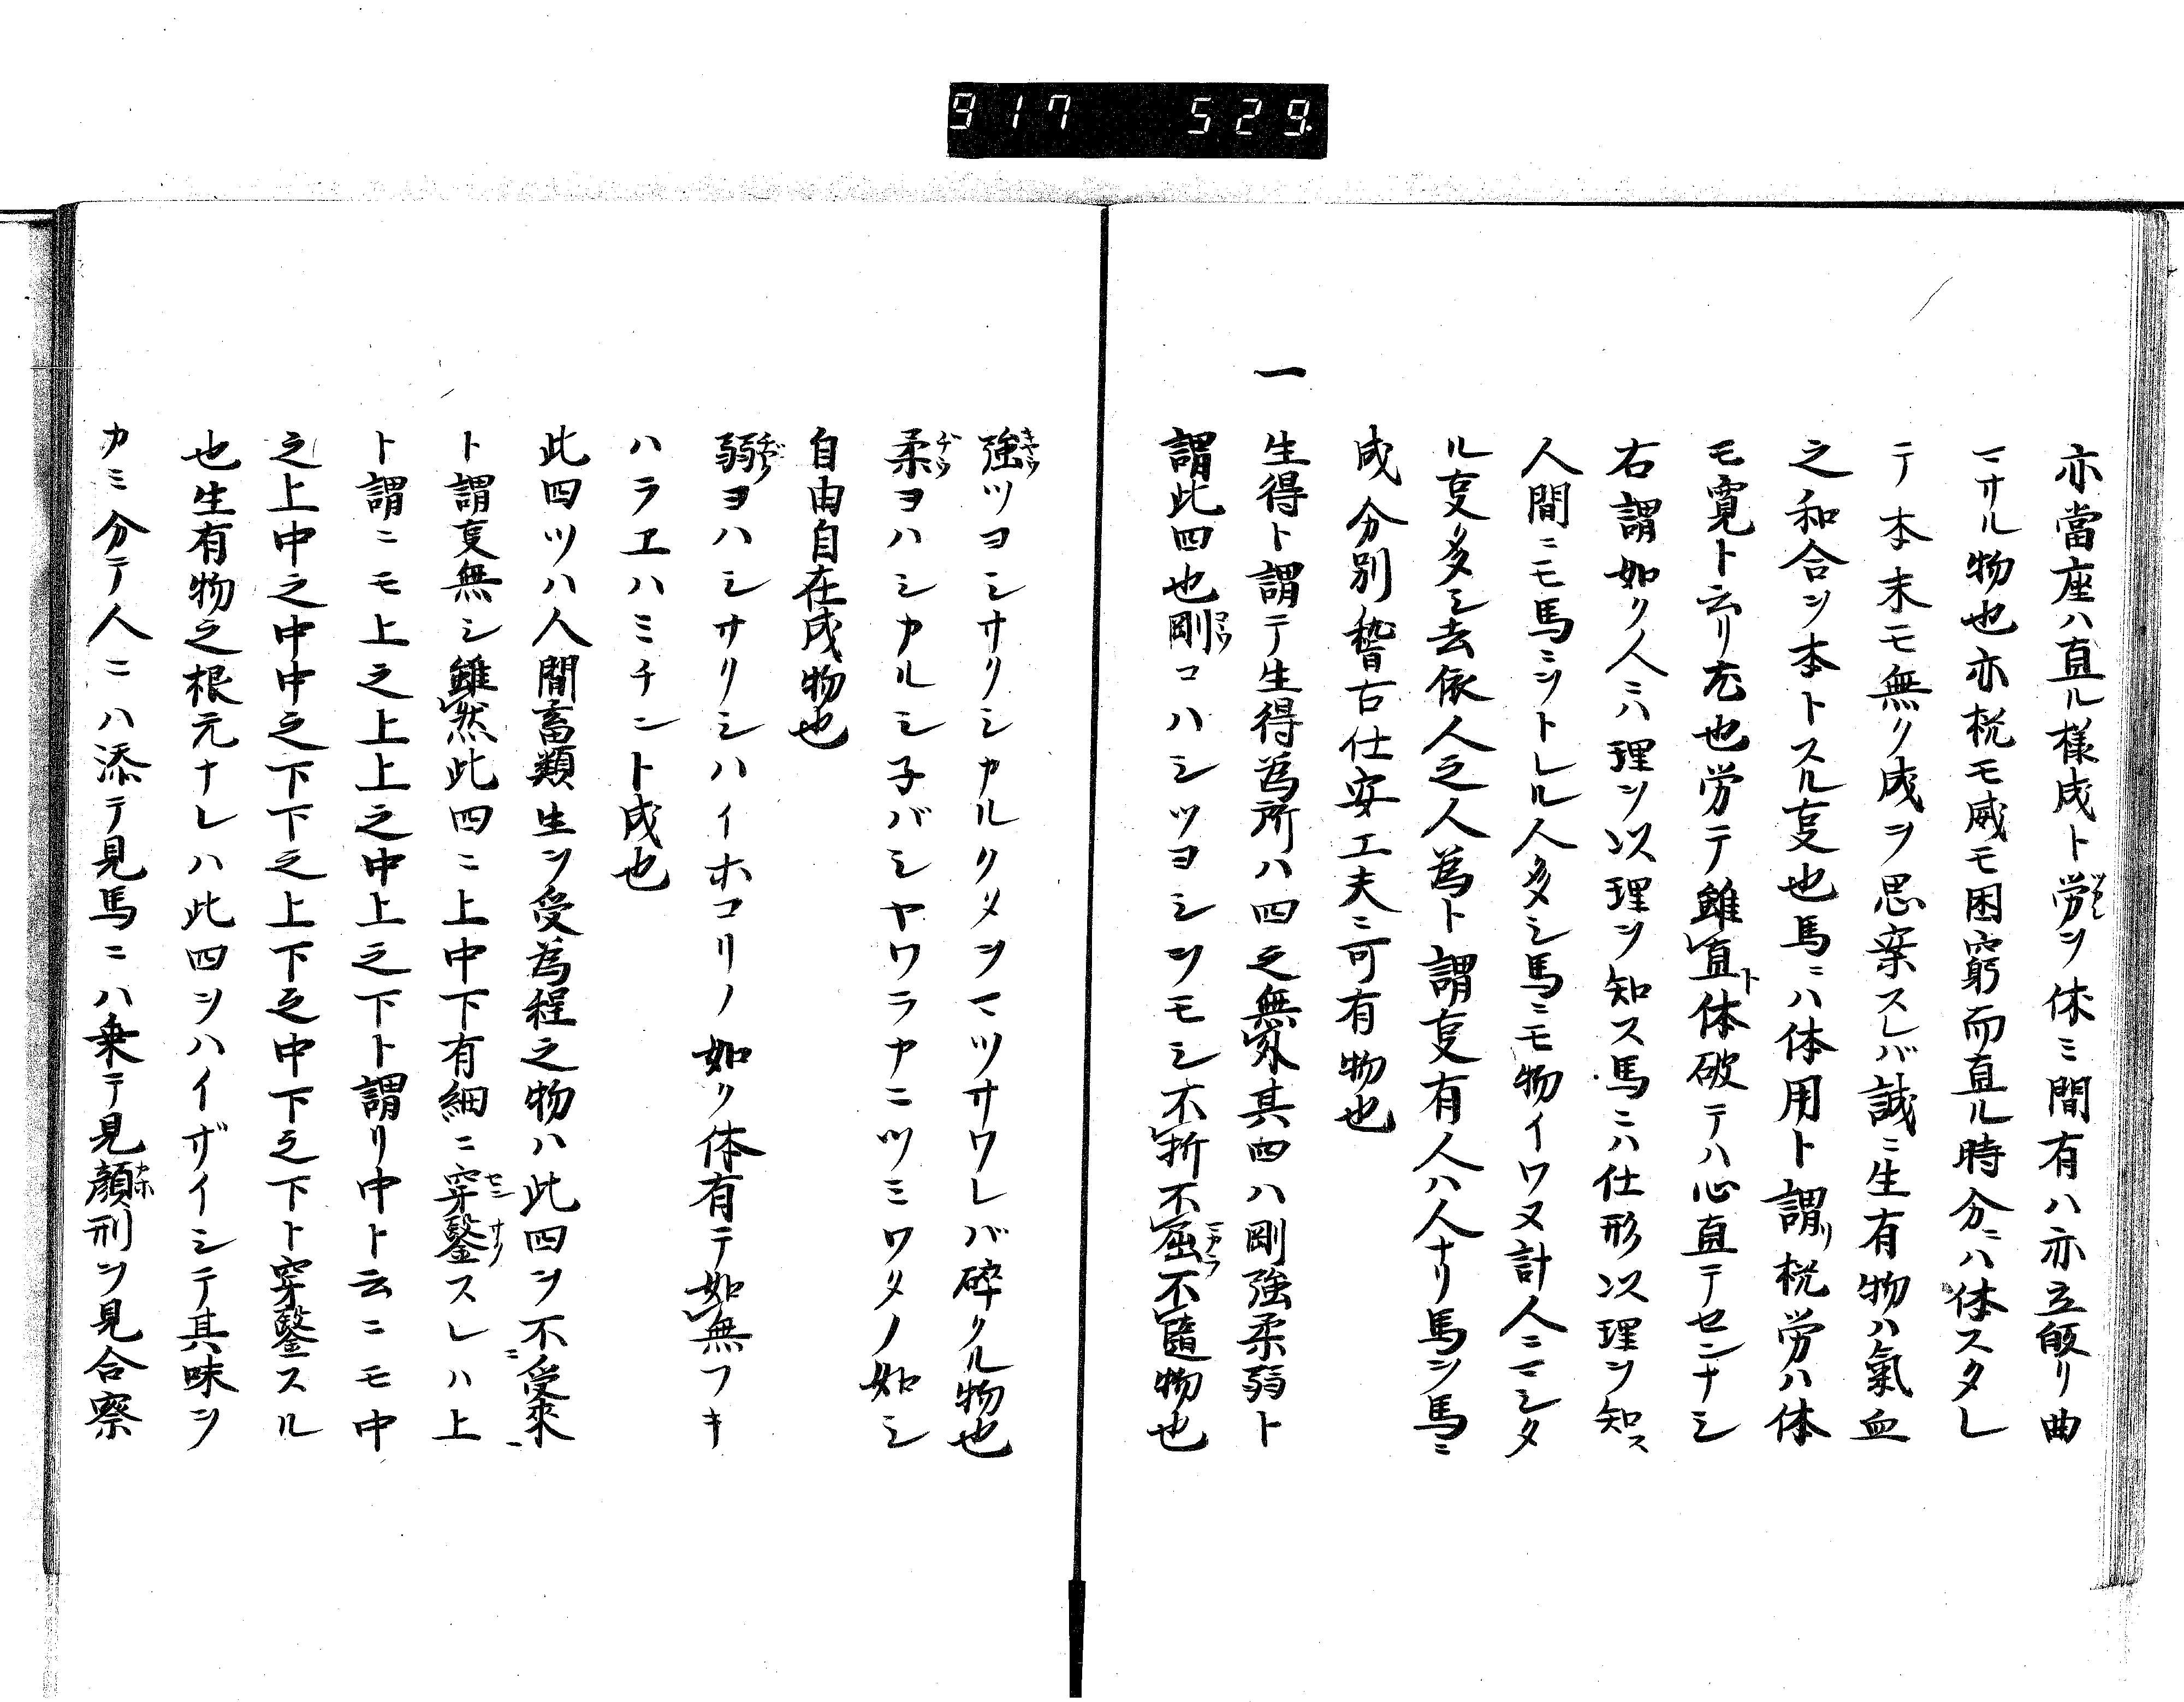 917 529
亦當座ハ直ル様成ト労ヲ休ミ間有ハ亦立皈リ曲
マサル物也亦㧞モ威モ困窮而直ル時分ニハ体スタレ
テ本末モ無ク成ヲ思案スレバ誠ニ生有物ハ氣血
之和合ヲ本トスル㕝也馬ニハ体用ト謂リ㧞労ハ体
モ寛ト云リ尤也労テ雖直ト体破テハ心直テセンナシ
右謂如ク人ニハ理ヲ以理ヲ知ス馬ニハ仕形以理ヲ知ス
人間ニモ馬ニヲトレル人多シ馬ニモ物イワヌ計人ニマシタ
ル㕝多シ去依人之人為ト謂㕝有人ハ人ナリ馬ヲ馬ニ
成分別稽古仕安工夫ニ可有物也
一 生得ト謂テ生得為所ハ四之無外其四ハ剛強柔弱ト
謂此四也剛コハシツヨシヲモシ不折不屈不隨物也
強ツヨシサリシカルクタヲマツサワレバ碎クル物也
柔ヨハシカルシ子バシヤワラカニツミワタノ如シ
自由自在成物也
弱ヨハシサリシハイホコリノ如ク体有テ如無フキ
ハラエハミチント成也
此四ツハ人間畜類生ヲ受為程之物ハ此四ヲ不受來
ト謂㕝無シ雖然此四ニ上中下有細ニ穿鑿スレハ上
ト謂ニモ上之上上之中上之下ト謂リ中ト云ニモ中
之上中之中中之下下之上下之中下之下ト穿鑿スル
也生有物之根元ナレハ此四ヲハイザイシテ其味ヲ
カミ分テ人ニハ添テ見馬ニハ乗テ見顔刑ヲ見合察